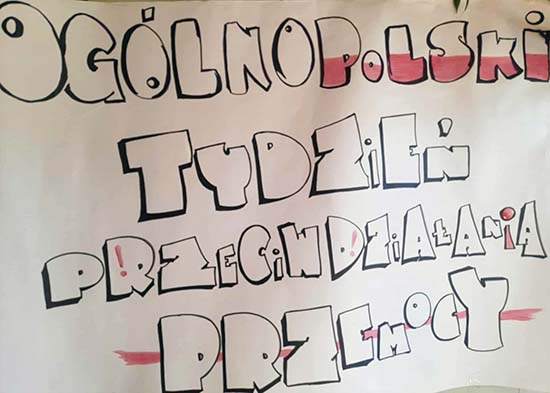 OGÓLNOPOLSKI
TYDZIEŃ
PRZECIWDZIAŁANIA
PRZEMOCY